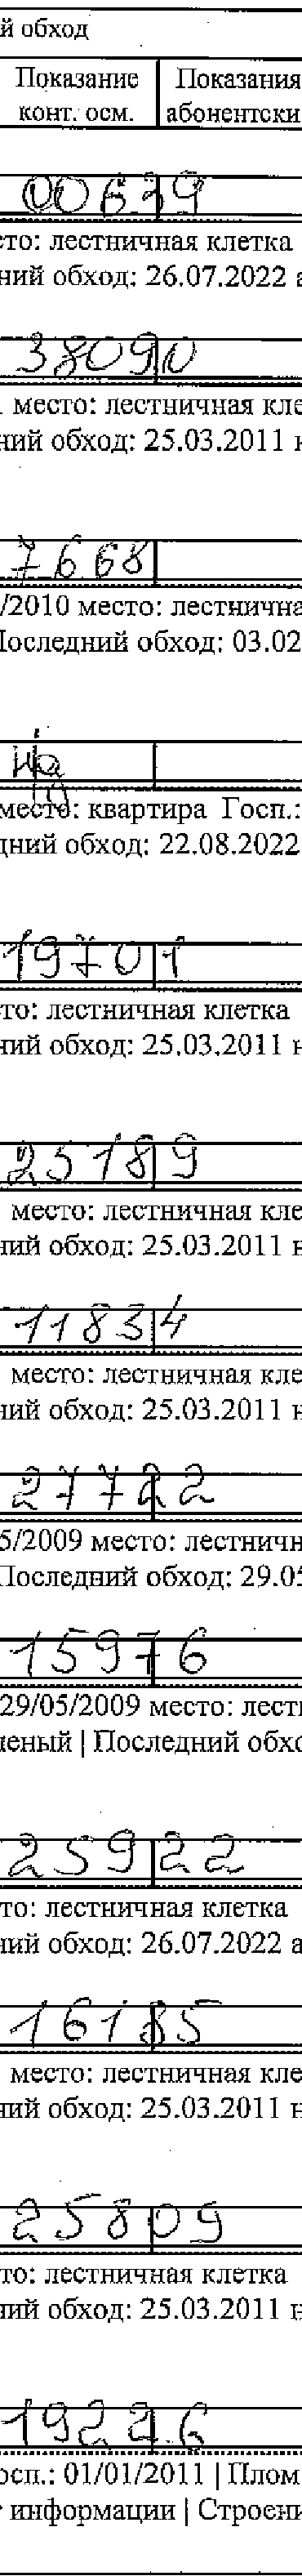 й обход
Показание Показания
конт. осм. абонентски
00639
сто: лестничная клетка
ний обход: 26.07.2022 а
38090
место: лестничная кле
ний обход: 25.03.2011 н
7668
/2010 место: лестнична
Последний обход: 03.02
место: квартира Госп.:
дний обход: 22.08.2022
19701
то: лестничная клетка
ний обход: 25.03.2011 н
25189
место: лестничная кле
ний обход: 25.03.2011 н
11834
место: лестничная кле
ний обход: 25.03.2011 н
27722
5/2009 место: лестничн
Последний обход: 29.05
15976
29/05/2009 место: лест
леный | Последний обхо
25922
то: лестничная клетка
ний обход: 26.07.2022 а
16185
место: лестничная кле
ний обход: 25.03.2011 н
25809
то: лестничная клетка
ний обход: 25.03.2011 н
19226
осп.: 01/01/2011 | Плом
информации | Строени